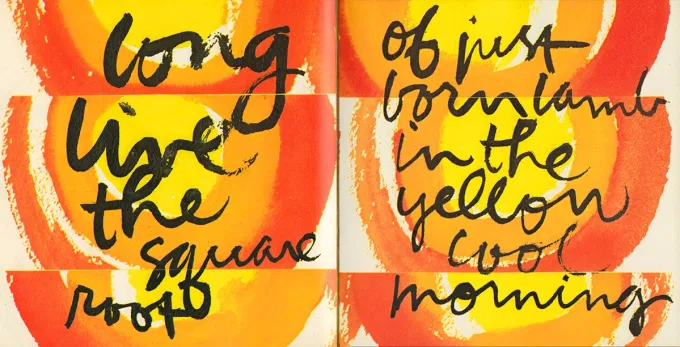 long
live
the
square
roots
of just
born lamb
in the
yellow
cool
morning